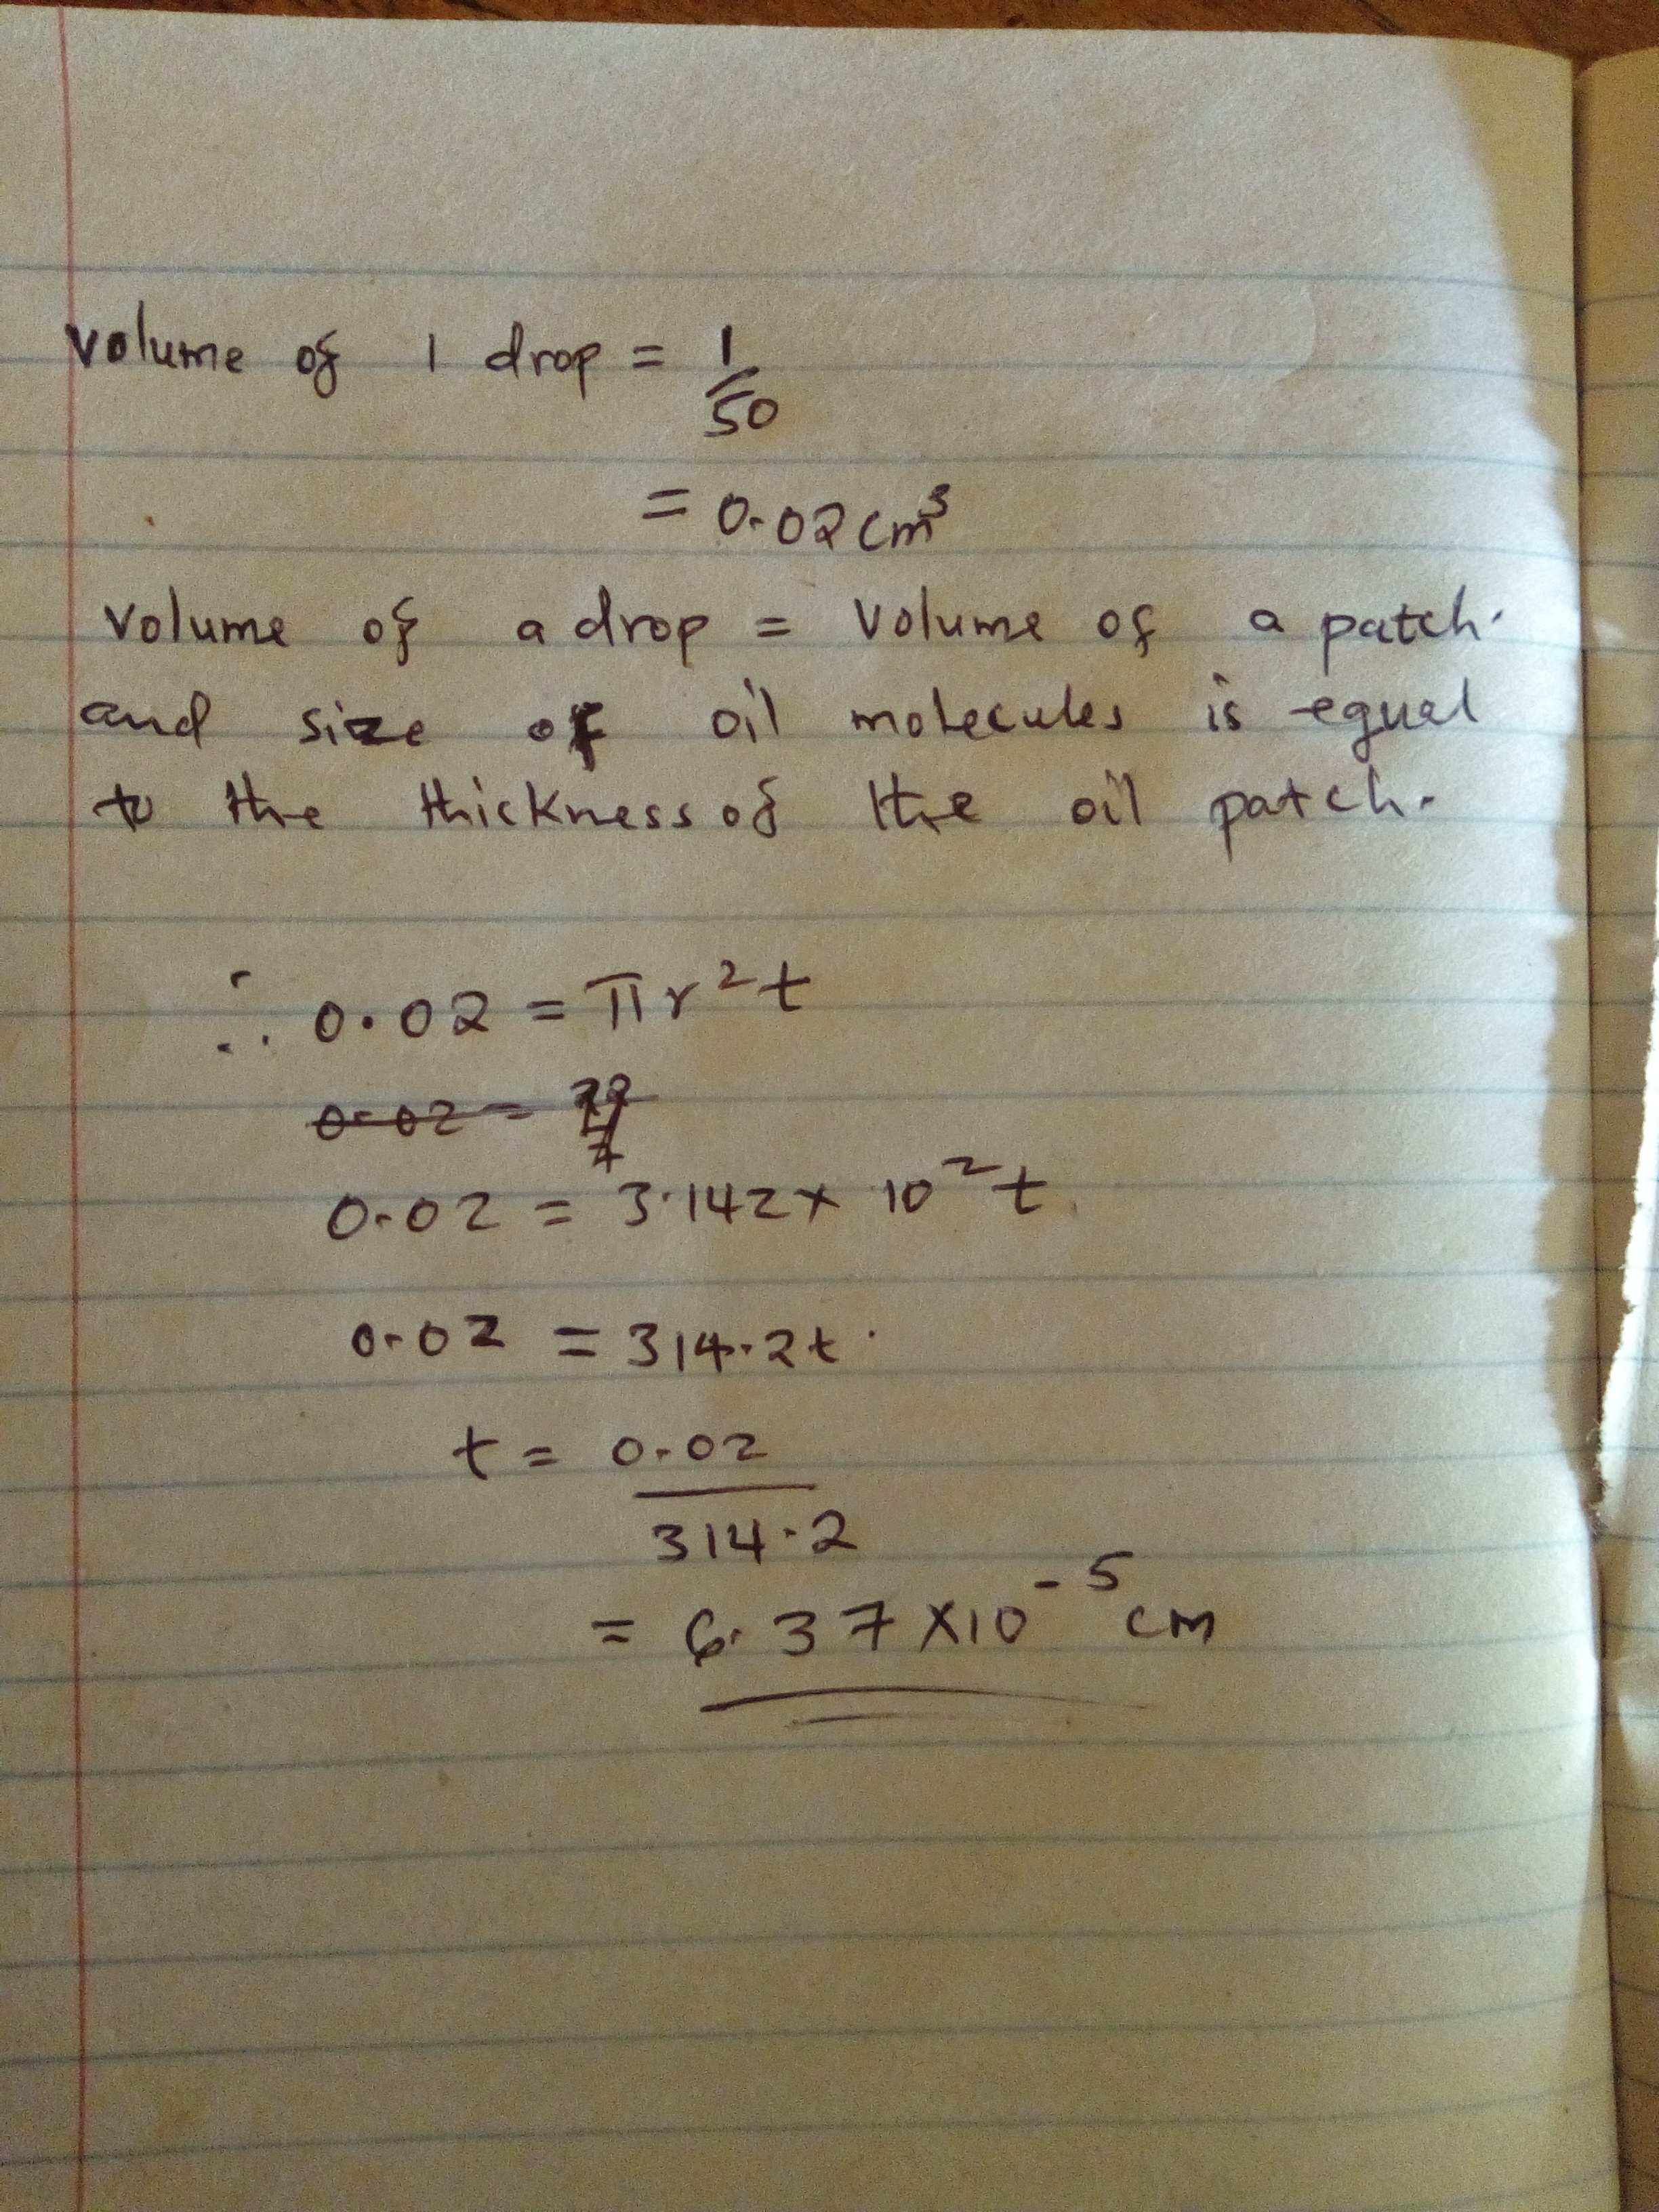 volume of 1 drop = 1/50
= 0.02 cm³
volume of a drop = volume of a patch.
and size of oil molecules is equal
to the thickness of the oil patch.
∴ 0.02 = πr²t
0.02 = 22/7
0.02 = 3.142 x 10²t
0.02 = 314.2t.
t = 0.02
314.2
= 6.37 x10⁻⁵ cm